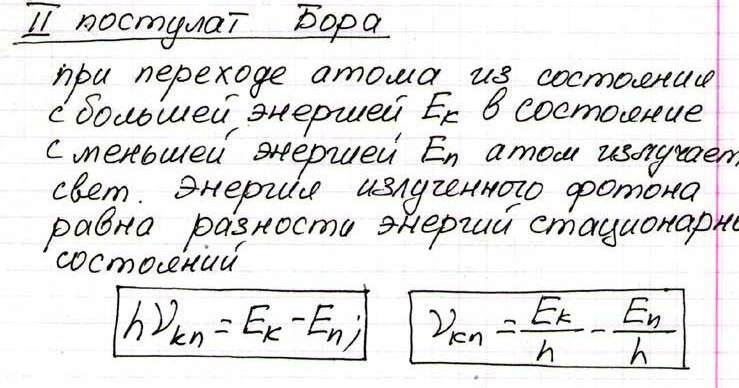 II постулат Бора
при переходе атома из состояния
с большей энергией Eк в состояние
с меньшей энергией En атом излучает
свет. Энергия излученного фотона
равна разности энергий стационарны
состояний
hνкn = Eк - En; νкn = Eк/h - En/h